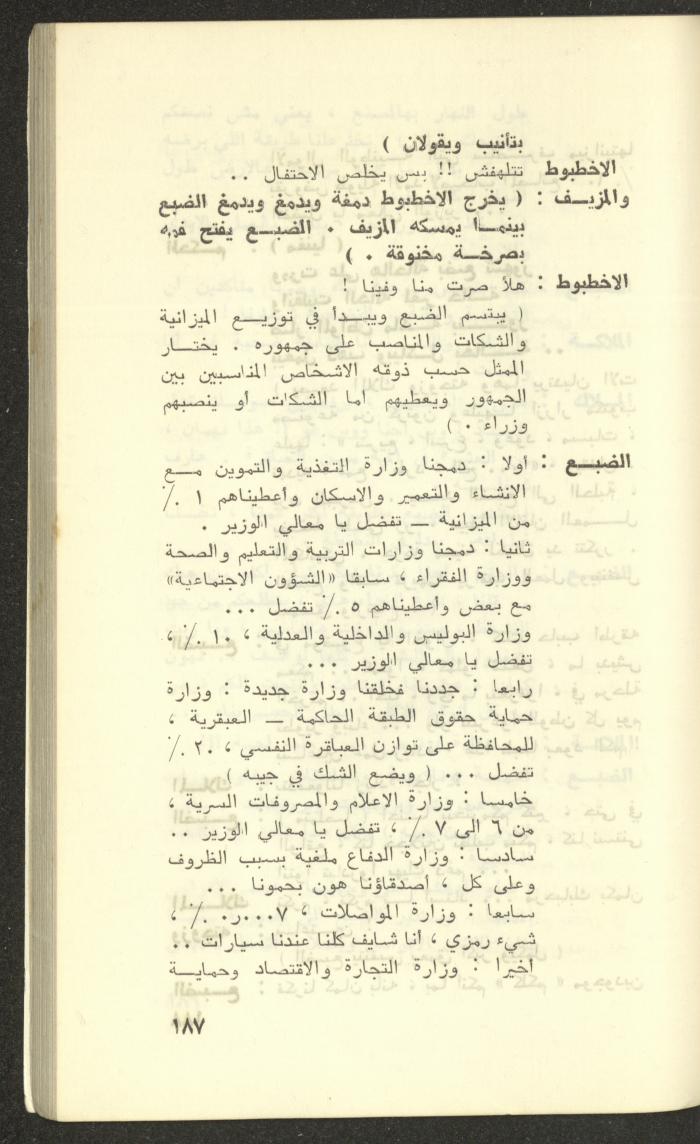 بتأنيب ويقولان )
الاخطبوط تتلهفش !! بس يخلص الاحتفال ..
والمزيـف : ( يخرج الاخطبوط دمغة ويدمغ ويدمغ الضبع
بينمـا يمسكه المزيف . الضبـع يفتح فمه
بصرخـة مخنوقة . )
الاخطبوط : هلأ صرت منا وفينا !
( يبتسم الضبع ويبـدأ في توزيـع الميزانية
والشكات والمناصب على جمهوره . يختـار
الممثل حسب ذوقه الاشخاص المناسبين بين
الجمهور ويعطيهم اما الشكات أو ينصبهم
وزراء . )
الضبـع : أولا : دمجنا وزارة التغذية والتموين مـع
الانشاء والتعمير والاسكان وأعطيناهم ١ ٪
من الميزانية ــ تفضل يا معالي الوزير .
ثانيا : دمجنا وزارات التربية والتعليم والصحة
ووزارة الفقراء ، سابقا «الشؤون الاجتماعية»
مع بعض وأعطيناهم ٥ ٪ تفضل ...
وزارة البوليس والداخلية والعدلية ، ١٠ ٪ ،
تفضل يا معالي الوزير ...
رابعا : جددنا فخلقنا وزارة جديدة : وزارة
حماية حقوق الطبقة الحاكمة ــ العبقرية ،
للمحافظة على توازن العباقرة النفسي ، ٢٠ ٪
تفضل ... ( ويضع الشك في جيبه )
خامسا : وزارة الاعلام والمصروفات السرية ،
من ٦ الى ٧ ٪ ، تفضل يا معالي الوزير ..
سادسا : وزارة الدفاع ملغية بسبب الظروف
وعلى كل ، أصدقاؤنا هون بحمونا ...
سابعا : وزارة المواصلات ، ٠٠٠٧ر٠ ٪ ،
شيء رمزي ، أنا شايف كلنا عندنا سيارات ..
أخيرا : وزارة التجارة والاقتصاد وحمايـة
١٨٧